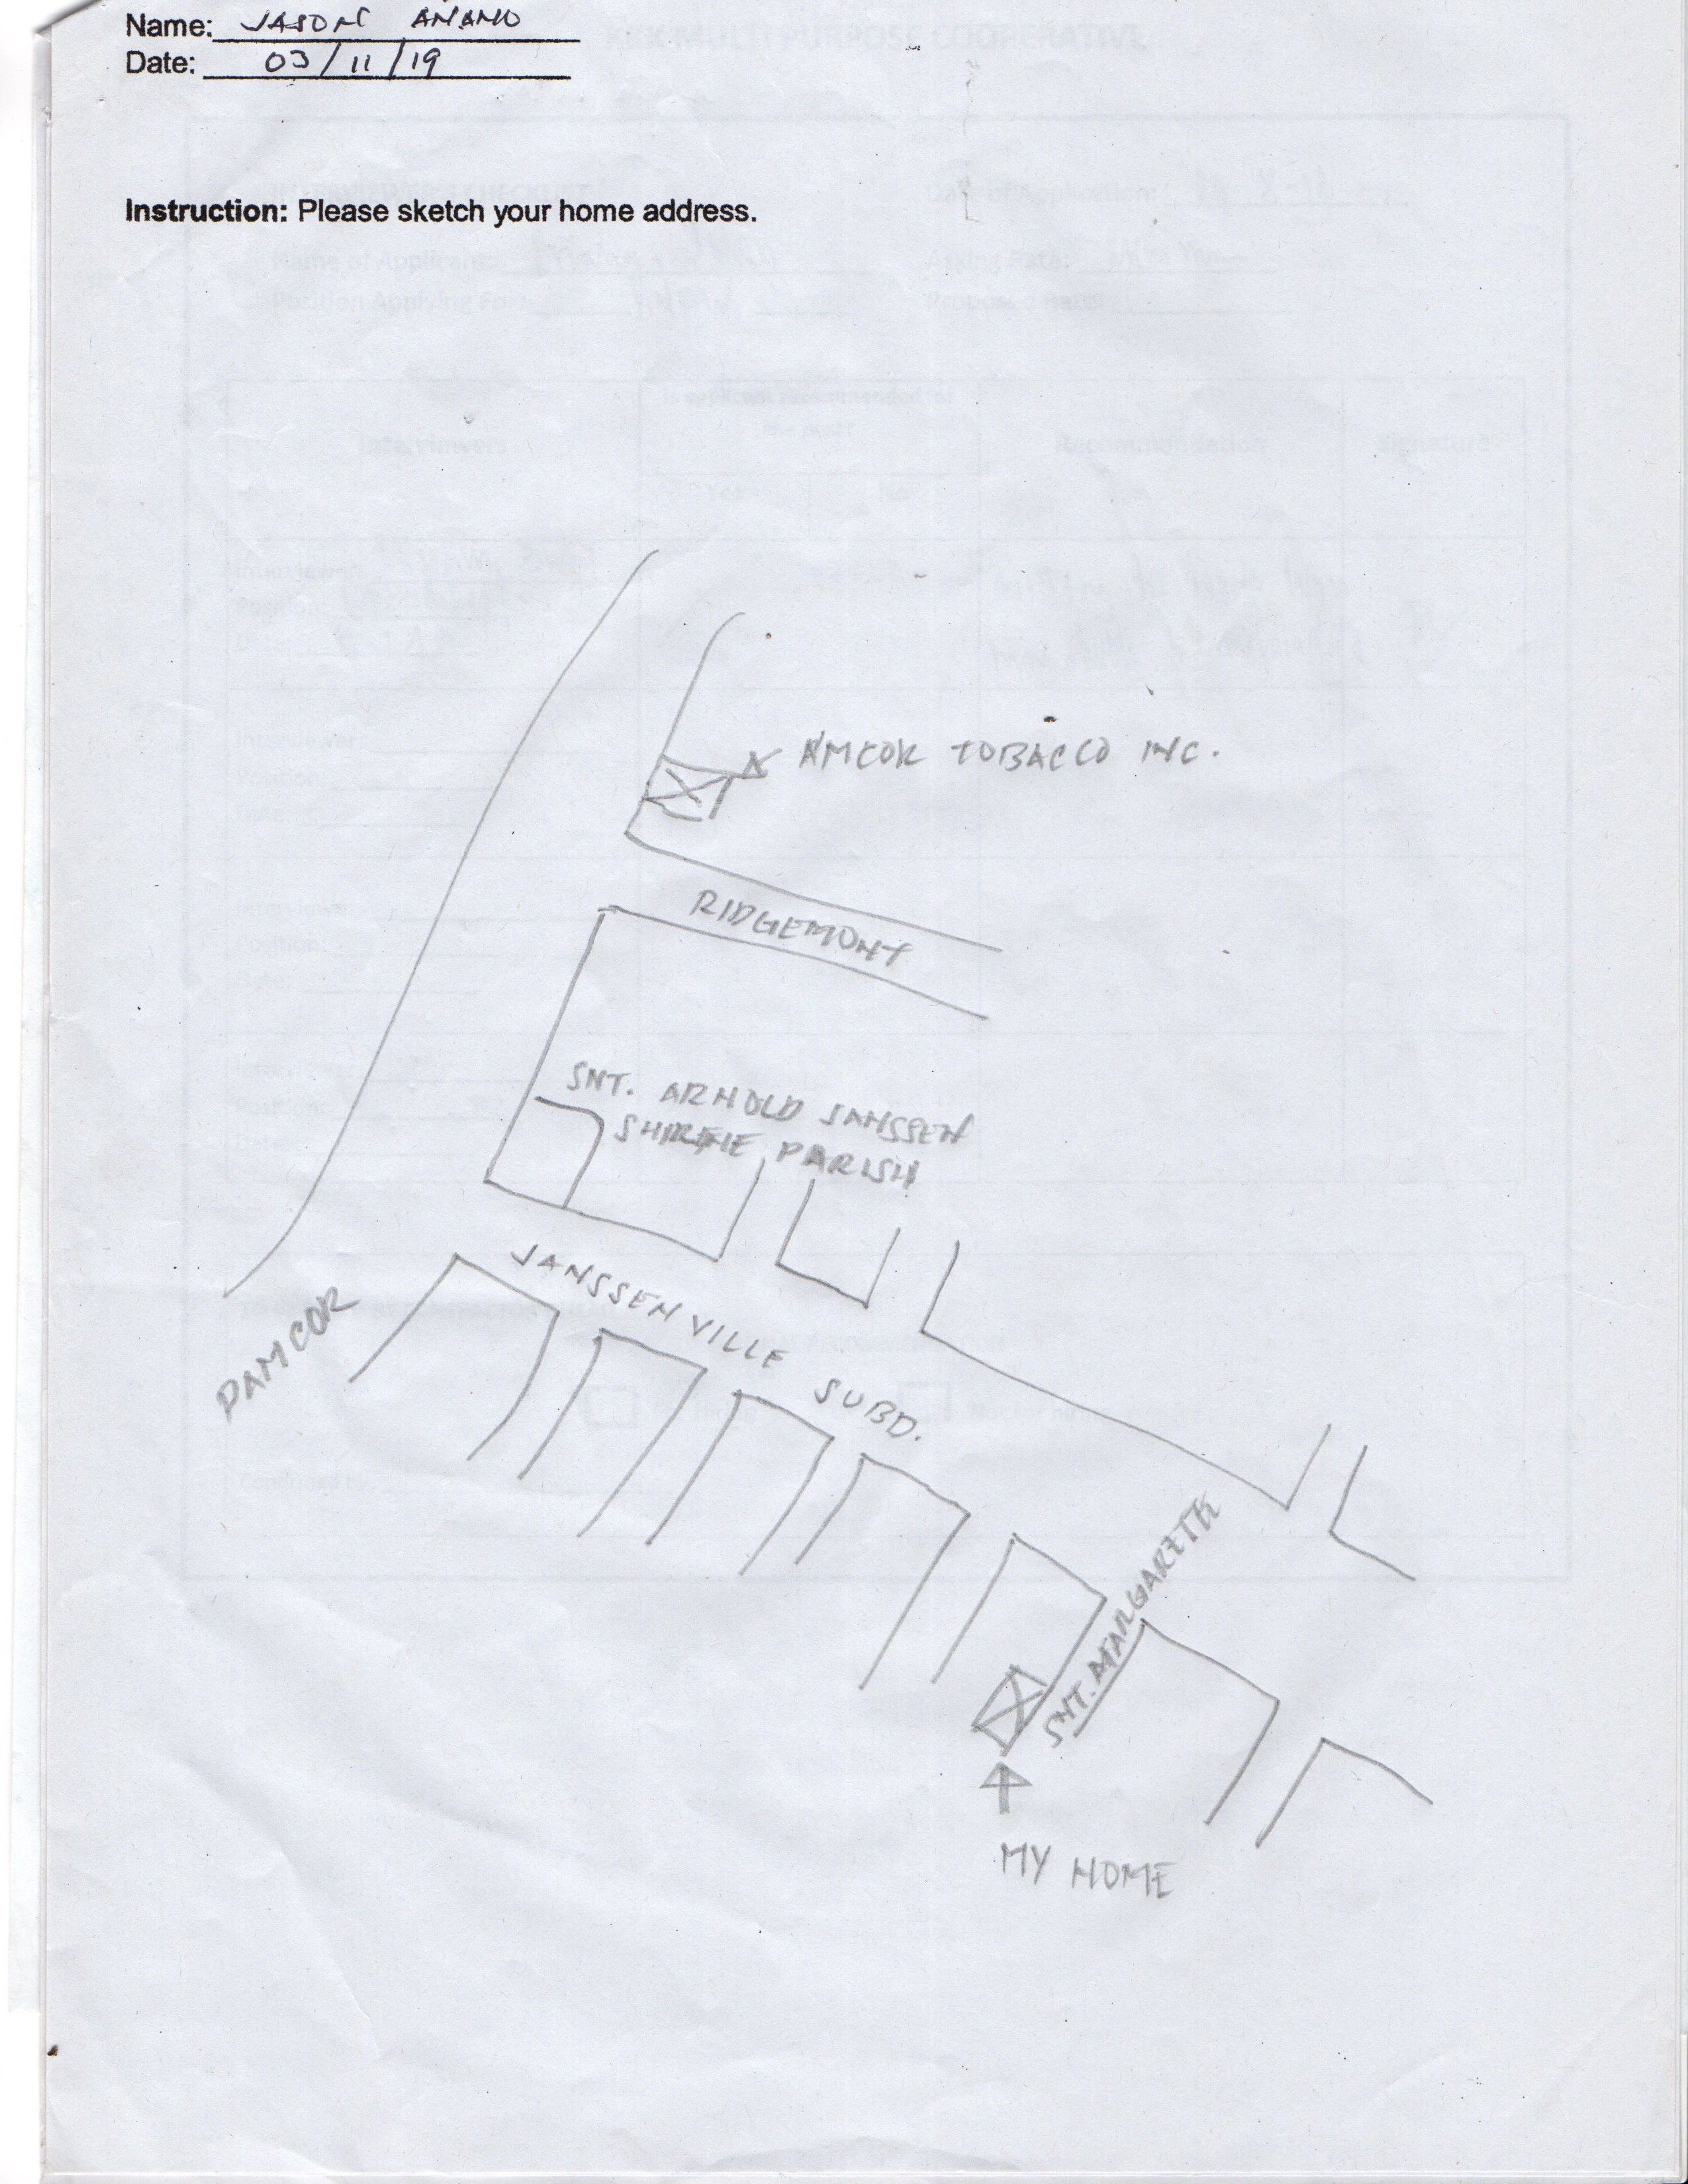 Name: JASON ANANO
Date: 03/11/19
Instruction: Please sketch your home address.
AMCOR TOBACCO INC.
RIDGEMONT
SNT. ARNOLD JANSSEN
SHRINE PARISH
JANSSENVILLE SUBD.
DAMCOR
SNT. MARGARETH
MY HOME